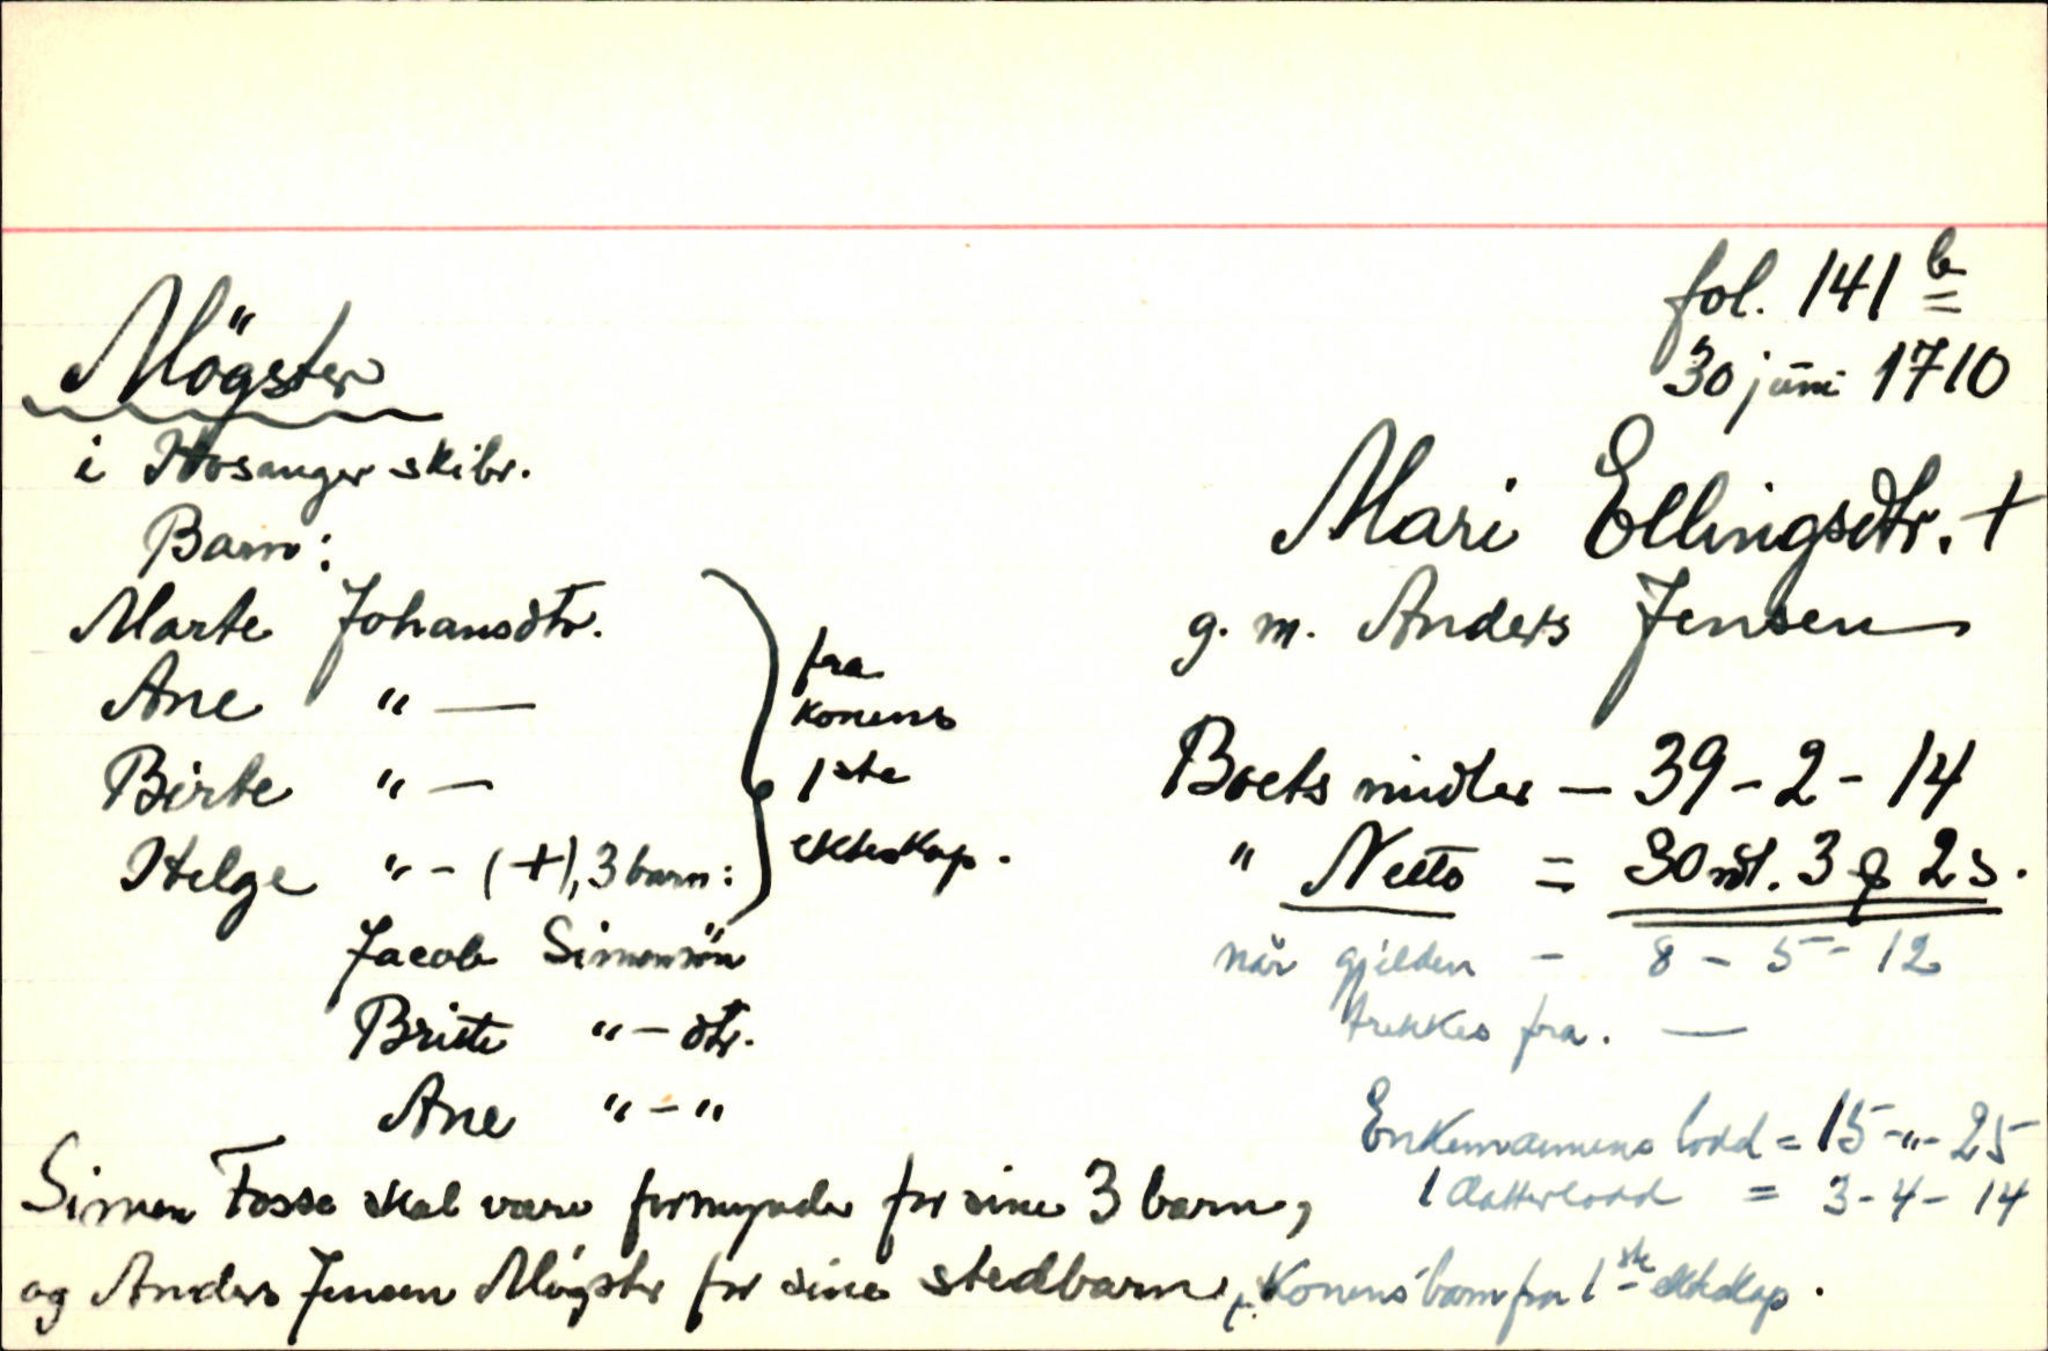 fol. 141 b
30 juni 1710
Mögster
i Hosanger skibr.
Mari Ellingsdtr. +
g. m. Anders Jensen
Barn:
Marte Johansdtr.
Ane " —
Birte " —
Helge " - (+), 3 barn:
fra
konens
1ste
ekteskap.
Jacob Simonsön
Britte " - dtr.
Ane " - "
Boets midler — 39 - 2 - 14
" Netto = 30 rdl. 3 ₰ 2 s.
når gjelden - 8 - 5 - 12
trekkes fra. —
Enkemannens lodd = 15 - " - 25
1 datterlodd = 3 - 4 - 14
Simon Fosse skal være formynder for sine 3 barn,
og Anders Jensen Mögster for sine stedbarn, konens barn fra 1ste ekteskap.